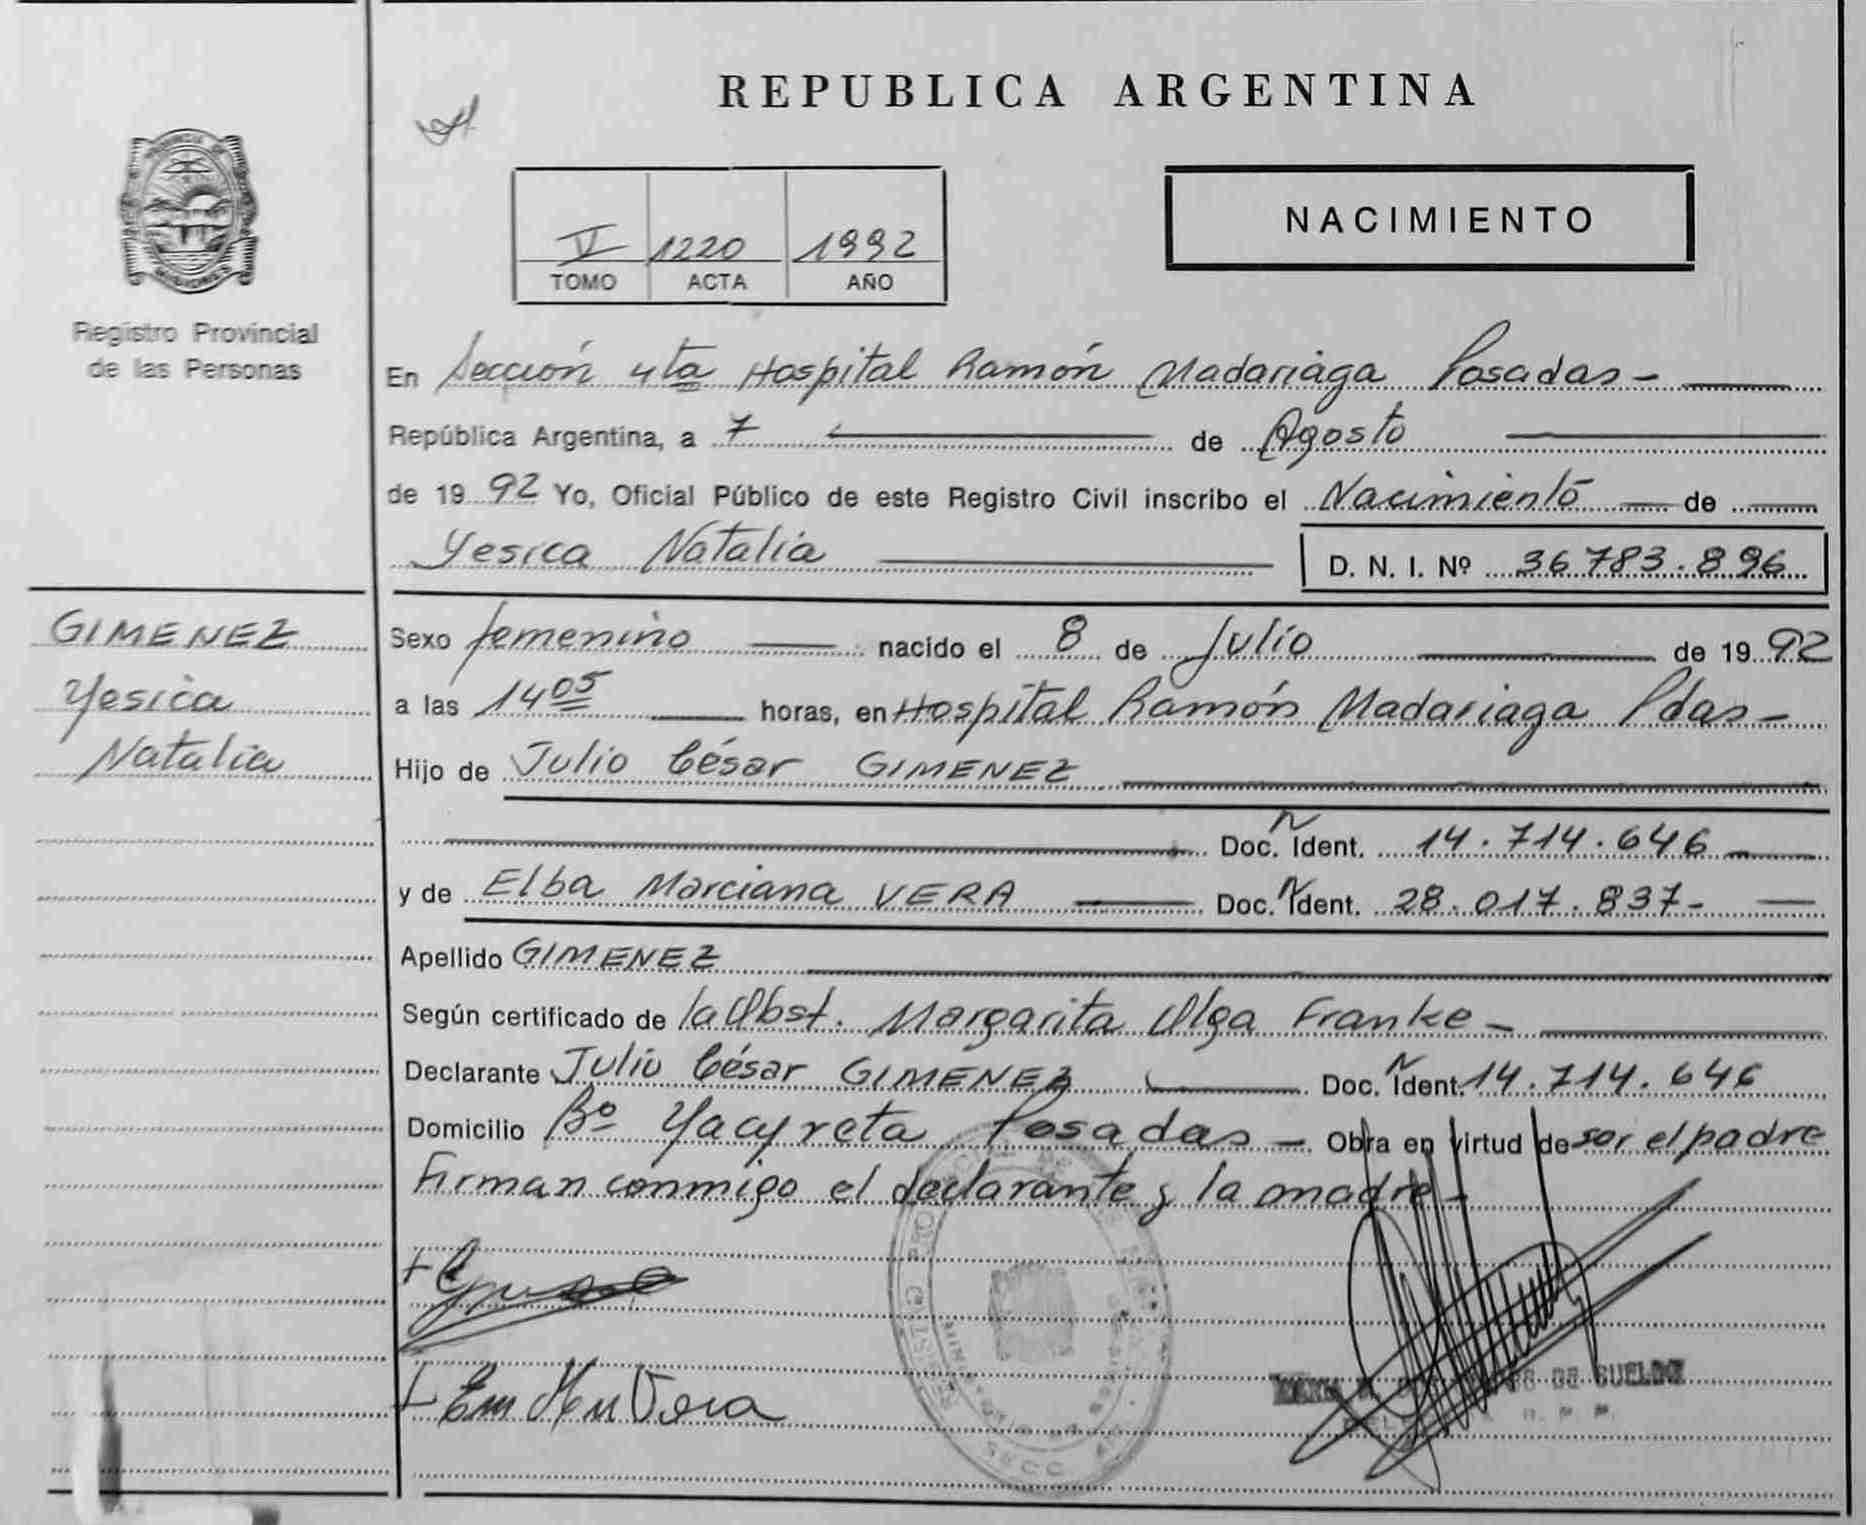 REPUBLICA ARGENTINA
NACIMIENTO
V 1220 1992
TOMO ACTA AÑO
PROVINCIA DE
MISIONES
Registro Provincial
de las Personas
En Sección 4ta Hospital Ramón Madariaga Posadas -
República Argentina, a 7 de Agosto
de 1992 Yo, Oficial Público de este Registro Civil inscribo el Nacimiento de
Yesica Natalia D. N. I. Nº 36783.896
GIMENEZ
Yesica
Natalia
Sexo femenino nacido el 8 de Julio de 1992
a las 14 05 horas, en Hospital Ramón Madariaga Pdas -
Hijo de Julio César GIMENEZ
Doc. Ident. 14.714.646
y de Elba Marciana VERA Doc. Ident. 28.017.837-
Apellido GIMENEZ
Según certificado de la Obst. Margarita Olga Franke -
Declarante Julio César GIMENEZ Doc. Ident. 14.714.646
Domicilio Bº Yacyreta Posadas - Obra en virtud de ser el padre
Firman conmigo el declarante y la madre -
Vera
DE SUELDO